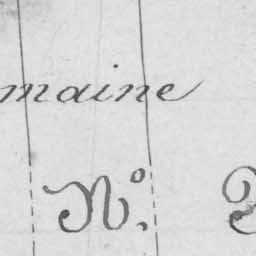 maine
Nº.